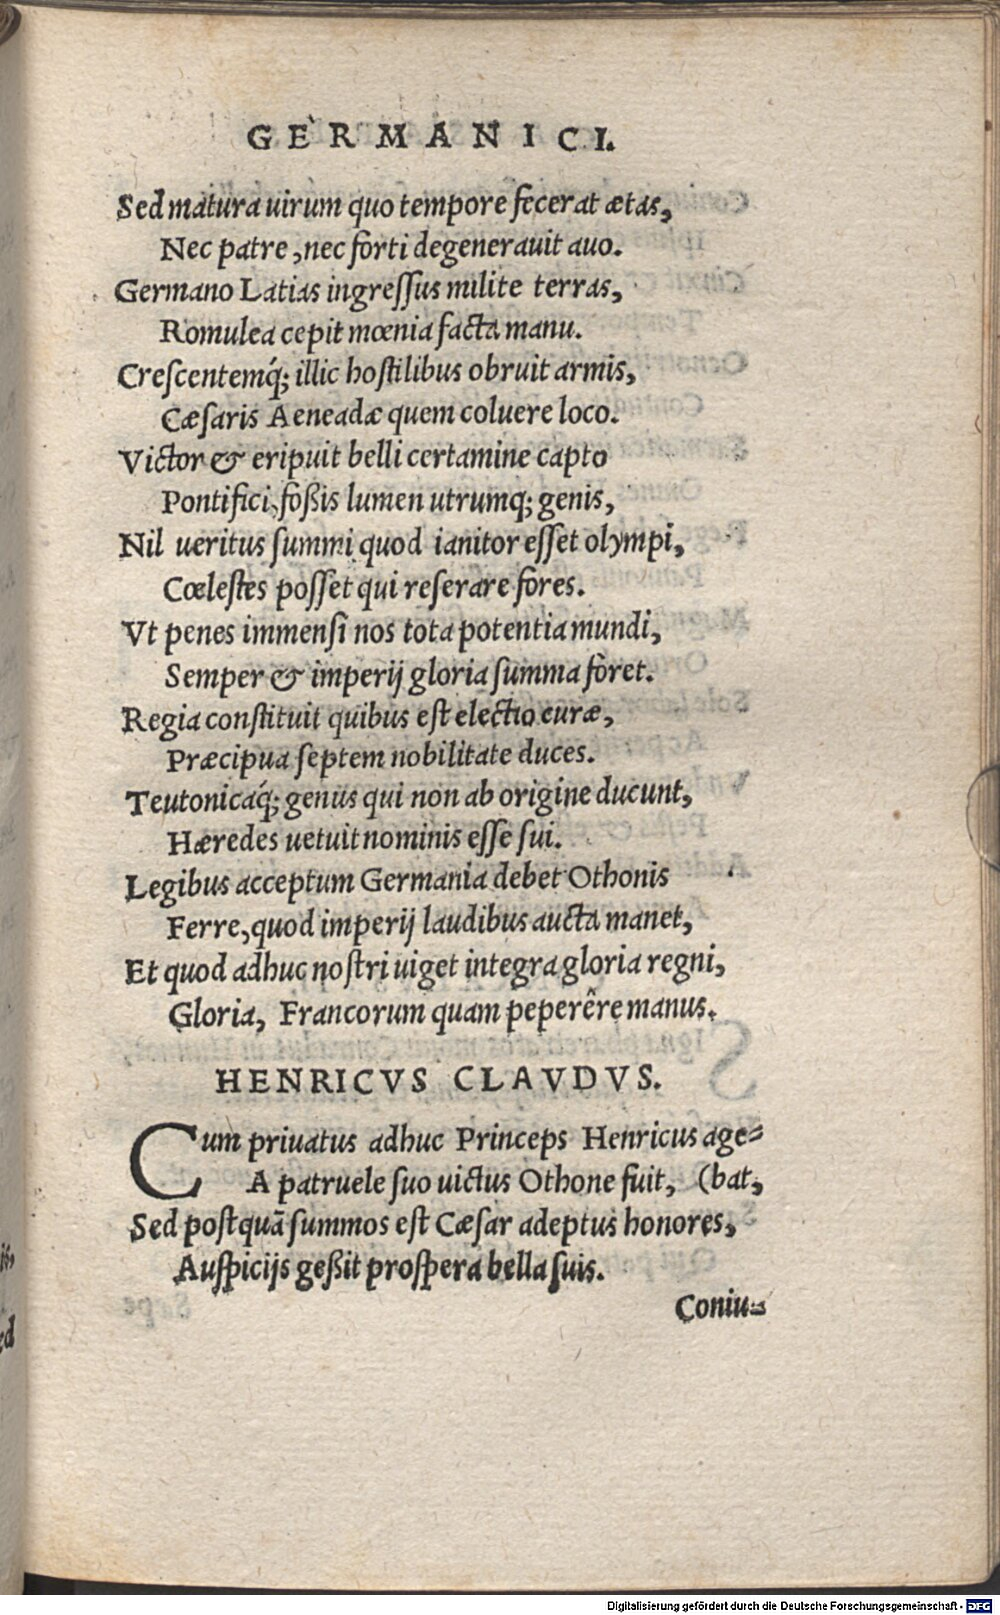 GERMANICI.
Sed matura uirum quo tempore fecerat ætas,
Nec patre, nec forti degenerauit auo.
Germano Latias ingreſſus milite terras,
Romulea cepit mœnia facta manu.
Creſcentemq́; illic hoſtilibus obruit armis,
Cæſaris Aeneadæ quem coluere loco.
Victor & eripuit belli certamine capto
Pontifici, foßis lumen utrumq; genis,
Nil ueritus ſummi quod ianitor eſſet olympi,
Cœleſtes poſſet qui reſerare fores.
Vt penes immenſi nos tota potentia mundi,
Semper & imperij gloria ſumma fòret.
Regia conſtituit quibus eſt electio curæ,
Præcipua ſeptem nobilitate duces.
Teutonicaq́; genus qui non ab origine ducunt,
Hæredes uetuit nominis eſſe ſui.
Legibus acceptum Germania debet Othonis
Ferre, quod imperij laudibus aucta manet,
Et quod adhuc noſtri uiget integra gloria regni,
Gloria, Francorum quam peperêre manus.
HENRICVS CLAVDVS.
Cum priuatus adhuc Princeps Henricus age⸗
A patruele ſuo uictus Othone fuit, (bat,
Sed poſtquā ſummos eſt Cæſar adeptus honores,
Auſpicijs geßit proſpera bella ſuis.
Coniu⸗
Digitalisierung gefördert durch die Deutsche Forschungsgemeinschaft - DFG